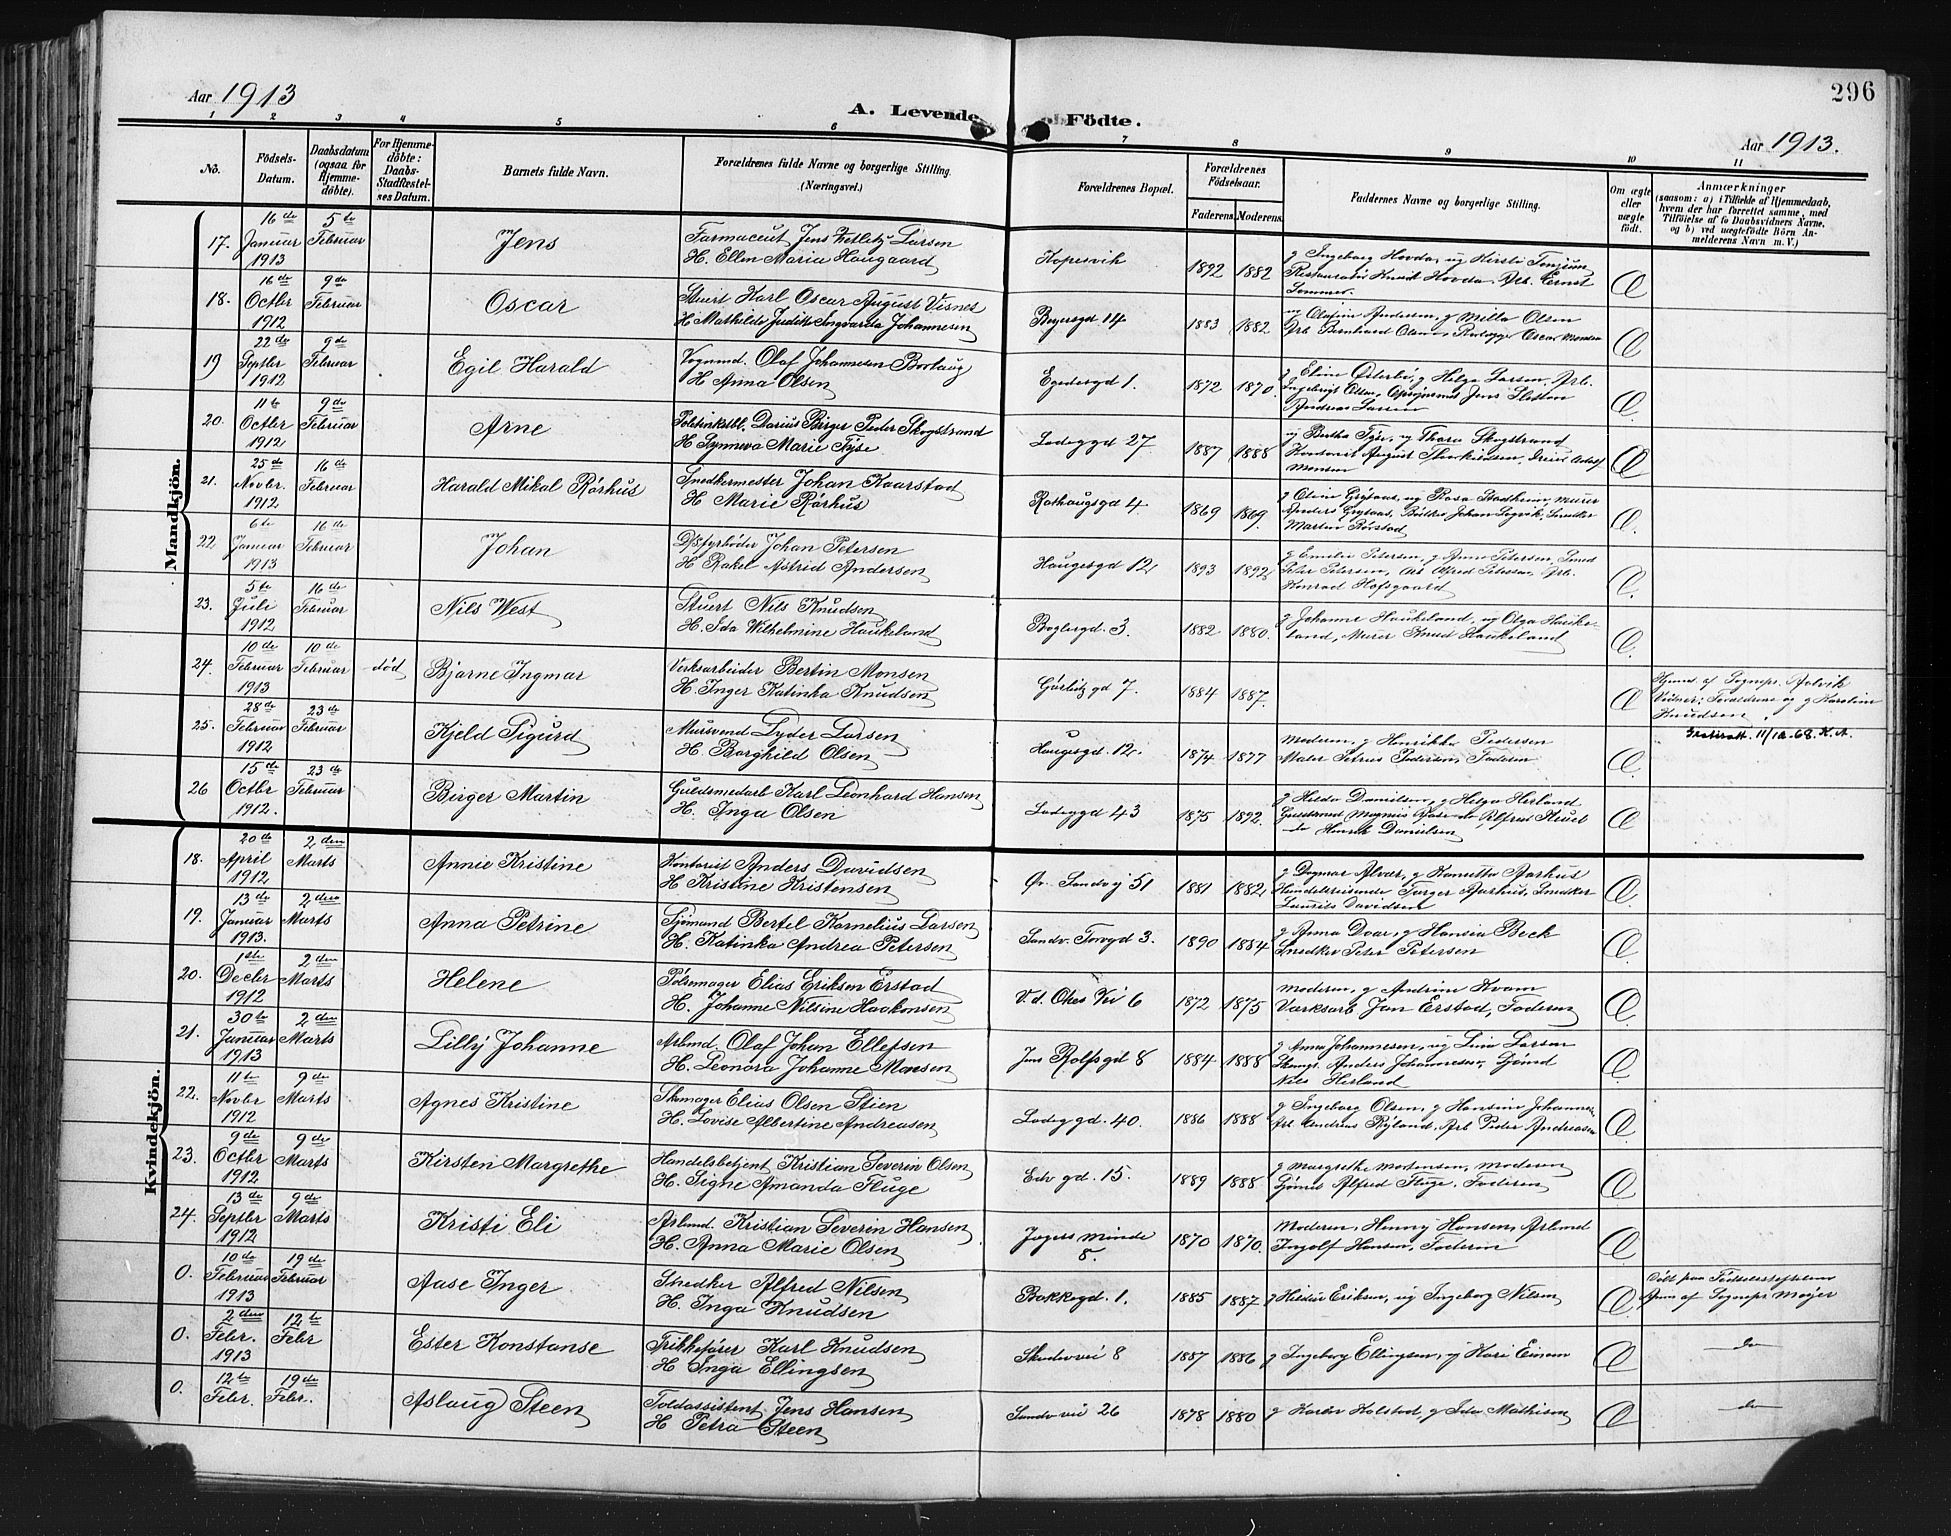 296
Aar 1913
A. Levende
Födte.
Aar 1913.
1 2 3 4 5 6 7 8 9 10 11
No.
Födsels-
Datum.
Daabsdatum
(ogsaa for
Hjemme-
döbte).
For Hjemme-
döbte:
Daabs-
Stadfæstel-
ses Datum.
Barnets fulde Navn.
Forældrenes fulde Navne og borgerlige Stilling.
(Næringsvei.)
Forældrenes Bopæl.
Forældrenes
Födselsaar.
Faderens. Moderens.
Faddernes Navne og borgerlige Stilling.
Om ægte
eller
uægte
födt.
Anmærkninger
(saasom: a) i Tilfælde af Hjemmedaab,
hvem der har forrettet samme, med
Tilföielse af to Daabsvidners Navne,
og b) ved uægtefödte Börn An-
melderens Navn m. V.)
Mandkjön.
17. 16de Januar 1913 5te Februar Jens
Farmaceut Jens Larsen
H. Ellen Maria Haugaard
Kopervik 1892 1882
Restauratör Knud Hovda, Arb. Ernst
Sommer.
18. 16de Octbr 1912 9de Februar Oscar
Stuert Karl Oscar August Visnes
H. Mathilde Judith Ingvarda Johannesen
Bøgersgd 14 1883 1882
Olufine Andersen, g Milla Olsen
Arb Bernhard Olsen, Oscar Monsen
19 22de Septbr 1912 9de Februar Egil Harald
Vognmd. Olaf Johannesen Bortaug
H Anna Olsen
Egedesgd 1. 1872 1870
g Eline Österbö, g Helga Larsen, Arb.
Ingebrigt Olsen, Jens Sletten
Andreas Larsen
20. 11te Octbr 1912 9de Februar Arne
Darius Birger Peder Skogstrand
H. Synneva Marie Fyse
Ladeggd 27 1887 1888
ug Bertha Fyse, ug Thora Skogstrand
Kontorist August Thorkildsen, Adolf
Monsen
21. 25de Novbr. 1912 16de Februar Harald Mikal Rörhus
Snedkermester Johan Kaarstad
H. Marie Rörhus
Rothaugsgd 4 1869 1869
g Oline Grytaas, ug Rosa Stadheim, Murer
Anders Grytaas, Bödker Johan Sogvik, Snedker
Martin Rörstad
22. 6te Januar 1913 16de Februar Johan
D/Sfyrböder Johan Petersen
H Rakel Astrid Andersen
Haugesgd 12 1893 1892
g Emelie Petersen, g Anna Petersen, Smed
Peter Petersen, Arb Alfred Petersen, Arb.
Konrad Hofsgaard
23. 5te Juli 1912 16de Februar Nils West
Stuert Nils Knudsen
H. Ida Wilhelmine Haukeland
Baglergd. 3. 1882 1880.
g Johanne Haukeland, ug Olga Hauke-
land, Murer Knud Haukeland
24. 10de Februar 1913 10de Februar död Bjarne Ingmar
Verksarbeider Bertin Monsen
H. Inger Katinka Knudsen
Görbitz gd 7. 1884 1887.
Hjemd. af Sognepr. Rolvik
Vidner: Forældrene og g Karoline
Knudsen
25. 28de Februar 1912 23de Februar Kjeld Sigurd
Mursvend Lyder Larsen
H. Borghild Olsen
Haugesgd. 12. 1874 1877
Moderen, g Henrikke Pedersen
Maler Petrus Pedersen, Faderen
11/12-68. K.A.
26 15de Octbr 1912. 23de Februar Birger Martin
Guldsmedarb Karl Leonhard Hansen
H. Inga Olsen
Ladeggd 43 1875 1892.
g Hilda Danielsen, g Helga Herland
do Henrik Danielsen
Kvindekjön.
18. 20de April 1912 2den Marts Annie Kristine
Kontorist Anders Davidsen
H Kristine Kristensen
Öv. Sandvj 51 1881 1882
g Dagmar Alver, g Kanutta Aarhus
Handelsreisende Torger Aarhus, Snedker
Laurits Davidsen
19. 13de Januar 1913. 2den Marts Anna Petrine
Sjömand Bertel Kornelius Larsen
H. Katinka Andrea Petersen
Sandv. Torvgd 3. 1890 1884
g Anna Doar, g Hansia Beck
Snedker Peter Petersen
20. 1ste Decbr 1912 2den Marts Helene
Pölsemager Elias Eriksen Erstad
H. Johanne Nilsine Haakonsen
V. d. Okes Vei 6 1872 1875
Moderen, g Andrine Kvam
Værksarb Jan Erstad, Faderen
21. 30te Januar 1913 2den Marts Lilly Johanne
Arbmd. Olaf Johan Ellefsen
H. Leonora Johanne Monsen
Jens Rolfsgd 8 1884 1888
g Anna Johannesen, ug Lina Larsen
Anders Johannesen, Sjömd
Nils Herland
22. 11te Novbr 1912 9de Marts Agnes Kristine
Skomager Elias Olsen Stien
H. Lovise Albertine Andreasen
Ladeggd. 40. 1886 1888
g Ingeborg Olsen, g Hansine Johannes,
Arb Andreas Ryland, Arb Peder Andreasen
23. 9de Octbr 1912 9de Marts Kirsten Margrethe
Handelsbetjent Kristian Severin Olsen
H. Signe Amanda Fluge
Edv gd. 15. 1889 1888
g Margrethe Mortensen, Moderen
Sjömd Alfred Fluge, Faderen
24. 13de Septbr 1912 9de Marts Kristi Eli
Arbmd. Kristian Severin Hansen
H. Anna Marie Olsen
Jægers minde
8. 1870 1870
Moderen, Henny Hansen, Arbmd
Ingolf Hansen, Faderen
0. 10de Februar 1913 19de Februar Aase Inger
Snedker Alfred Nilsen
H. Inga Knudsen
Bakkegd. 1. 1885 1887
g Hildur Eriksen, ug Ingeborg Nilsen
Döbt paa Födselsstiftelsen
af Sognepr. Meyer
0. 2den Febr. 1913 12te Febr Ester Konstanse
Trikkefører Karl Knudsen
H Inga Ellingsen
Skuteviksvei 8 1887 1886
g Ingeborg Ellingsen, g Kari Einen
do
0. 12te Febr. 19de Febr. Aslaug Steen
Toldassistent Jens Hansen
H Petra Steen
Sandv vei 26 1878 1880
g Karen Halstad, g Ida Mathisen
do